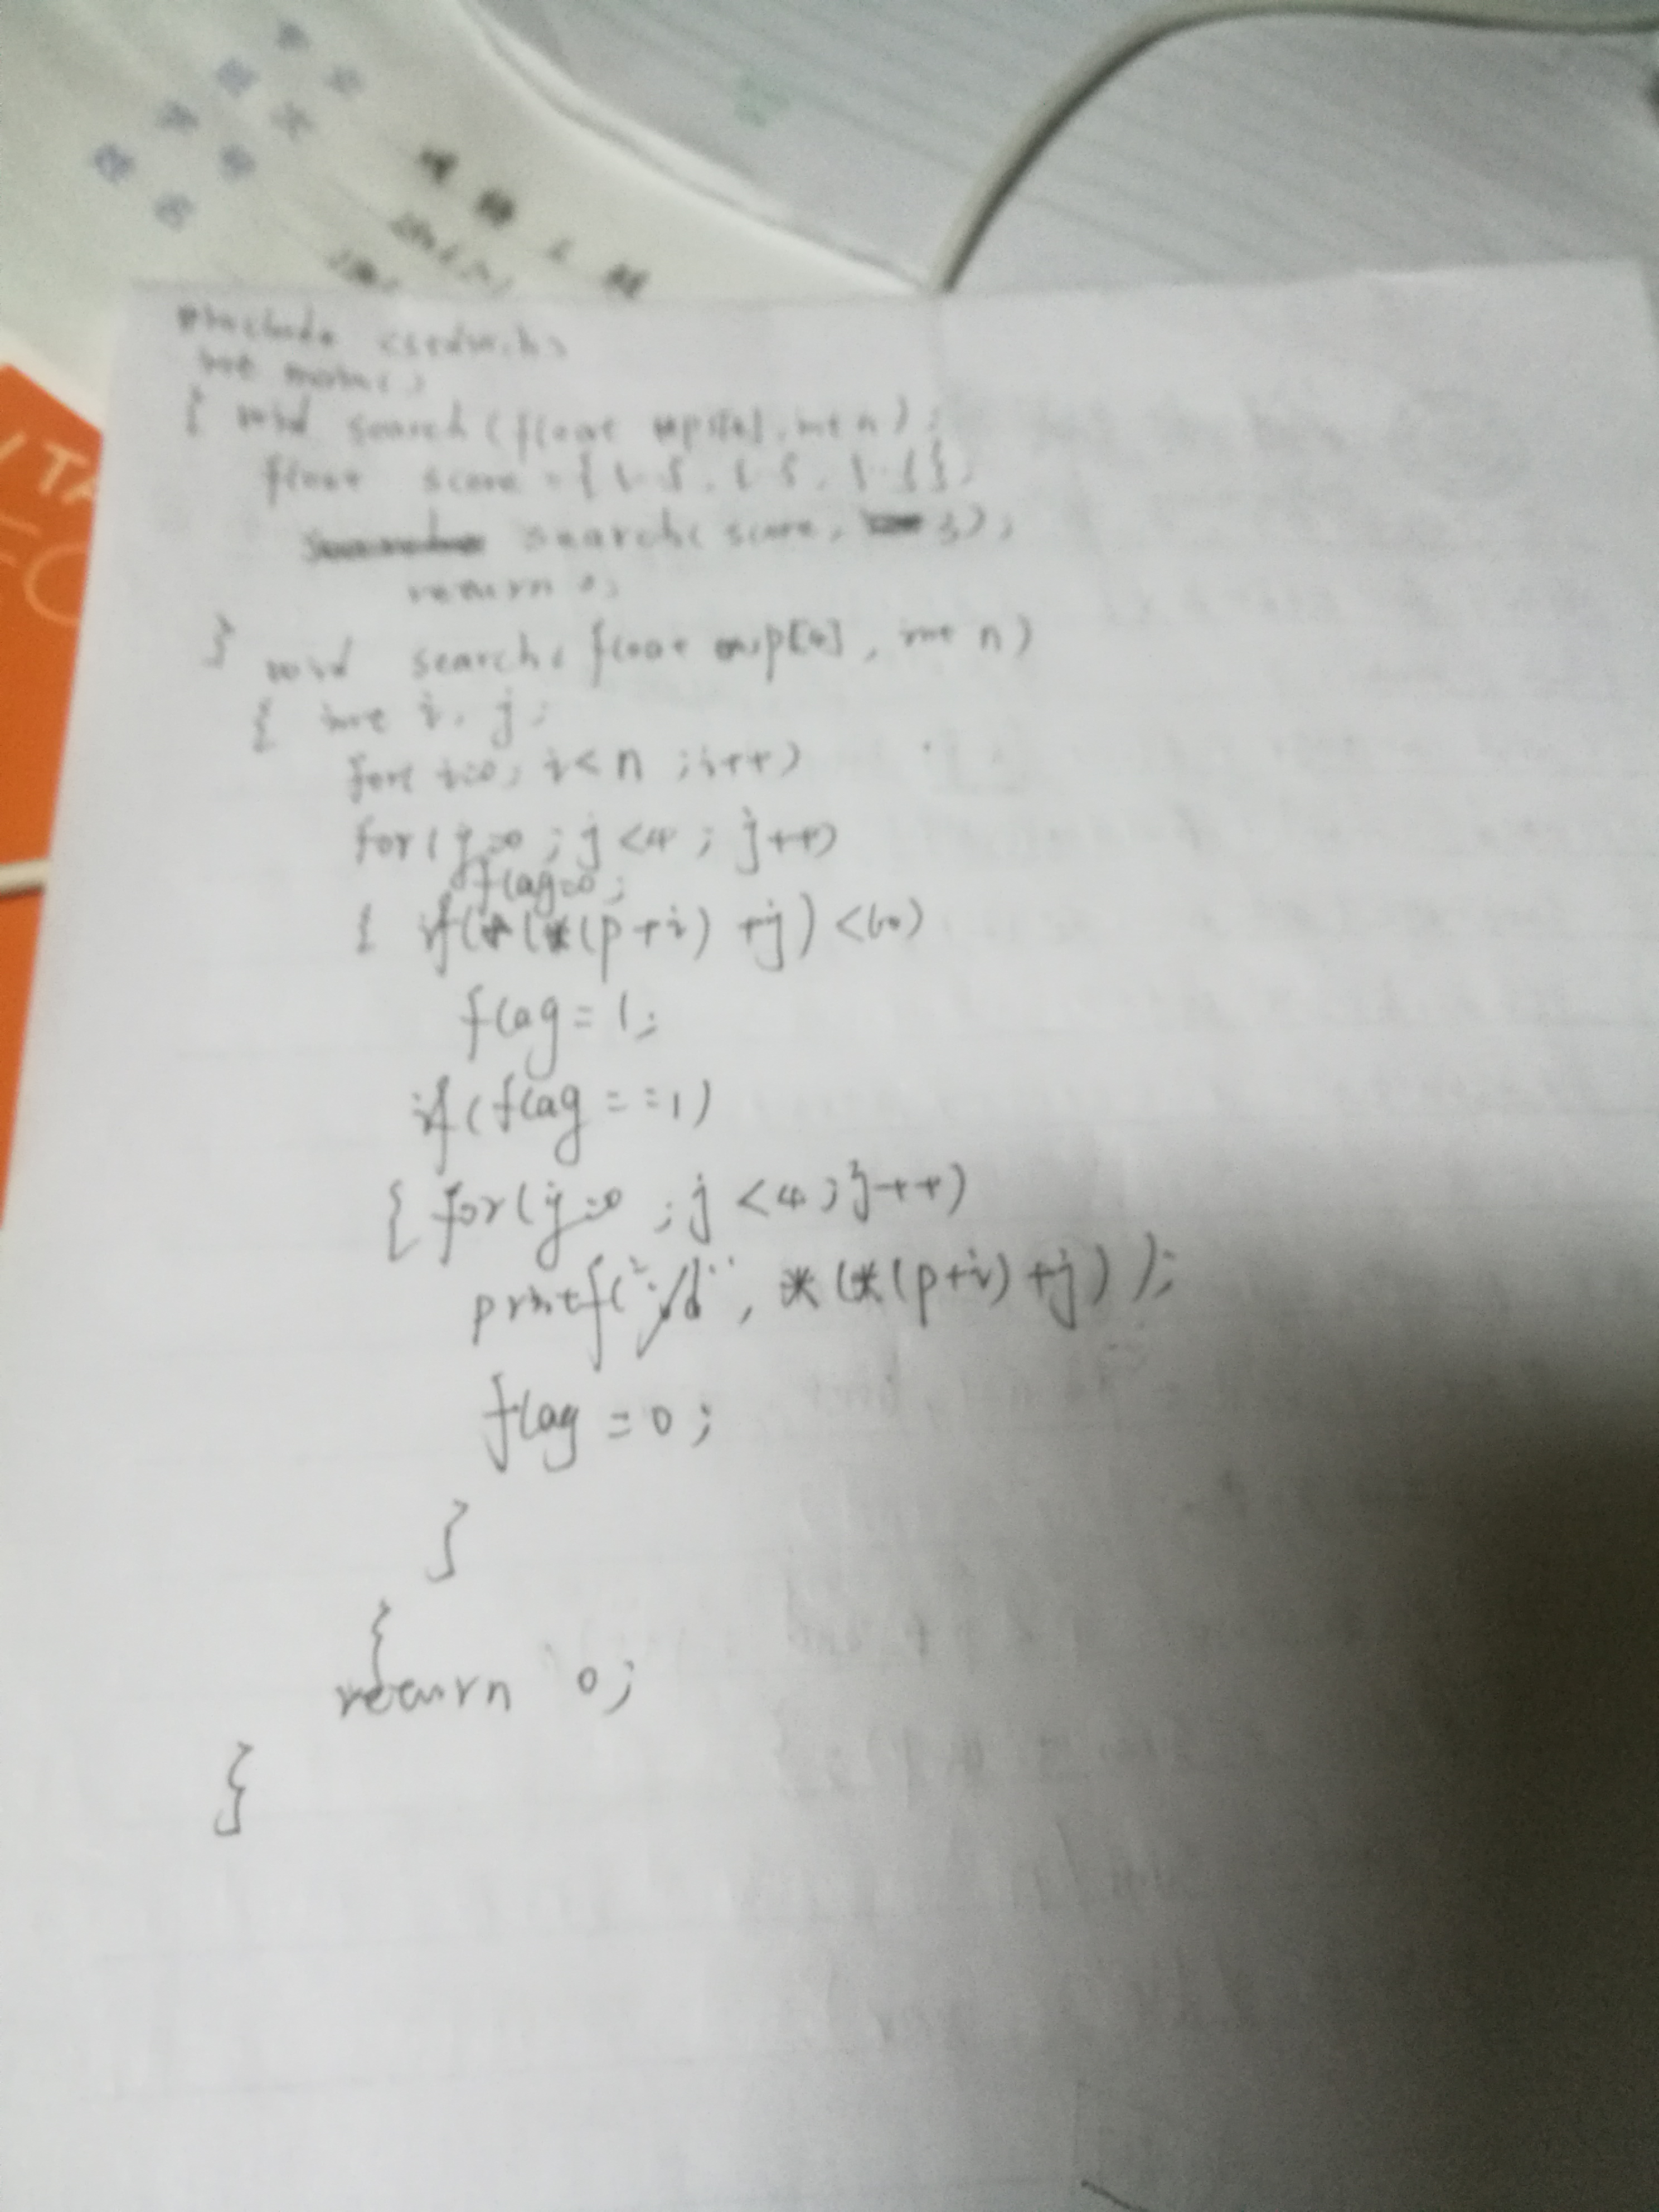 TA
#include <stdio.h>
int main()
{ void search(float (*p)[4], int n);
float score = { { }, { }, { } };
search(score, 3);
return 0;
} void search( float (*p)[4], int n)
{ int i, j;
for( i=0; i<n ; i++)
for( j=0 ; j<4 ; j++)
flag=0;
{ if(*(*(p+i) +j) <60)
flag=1;
if(flag==1)
{ for(j=0 ; j<4 ; j++)
printf("%d", *(*(p+i)+j));
flag=0;
}
}
return 0;
}